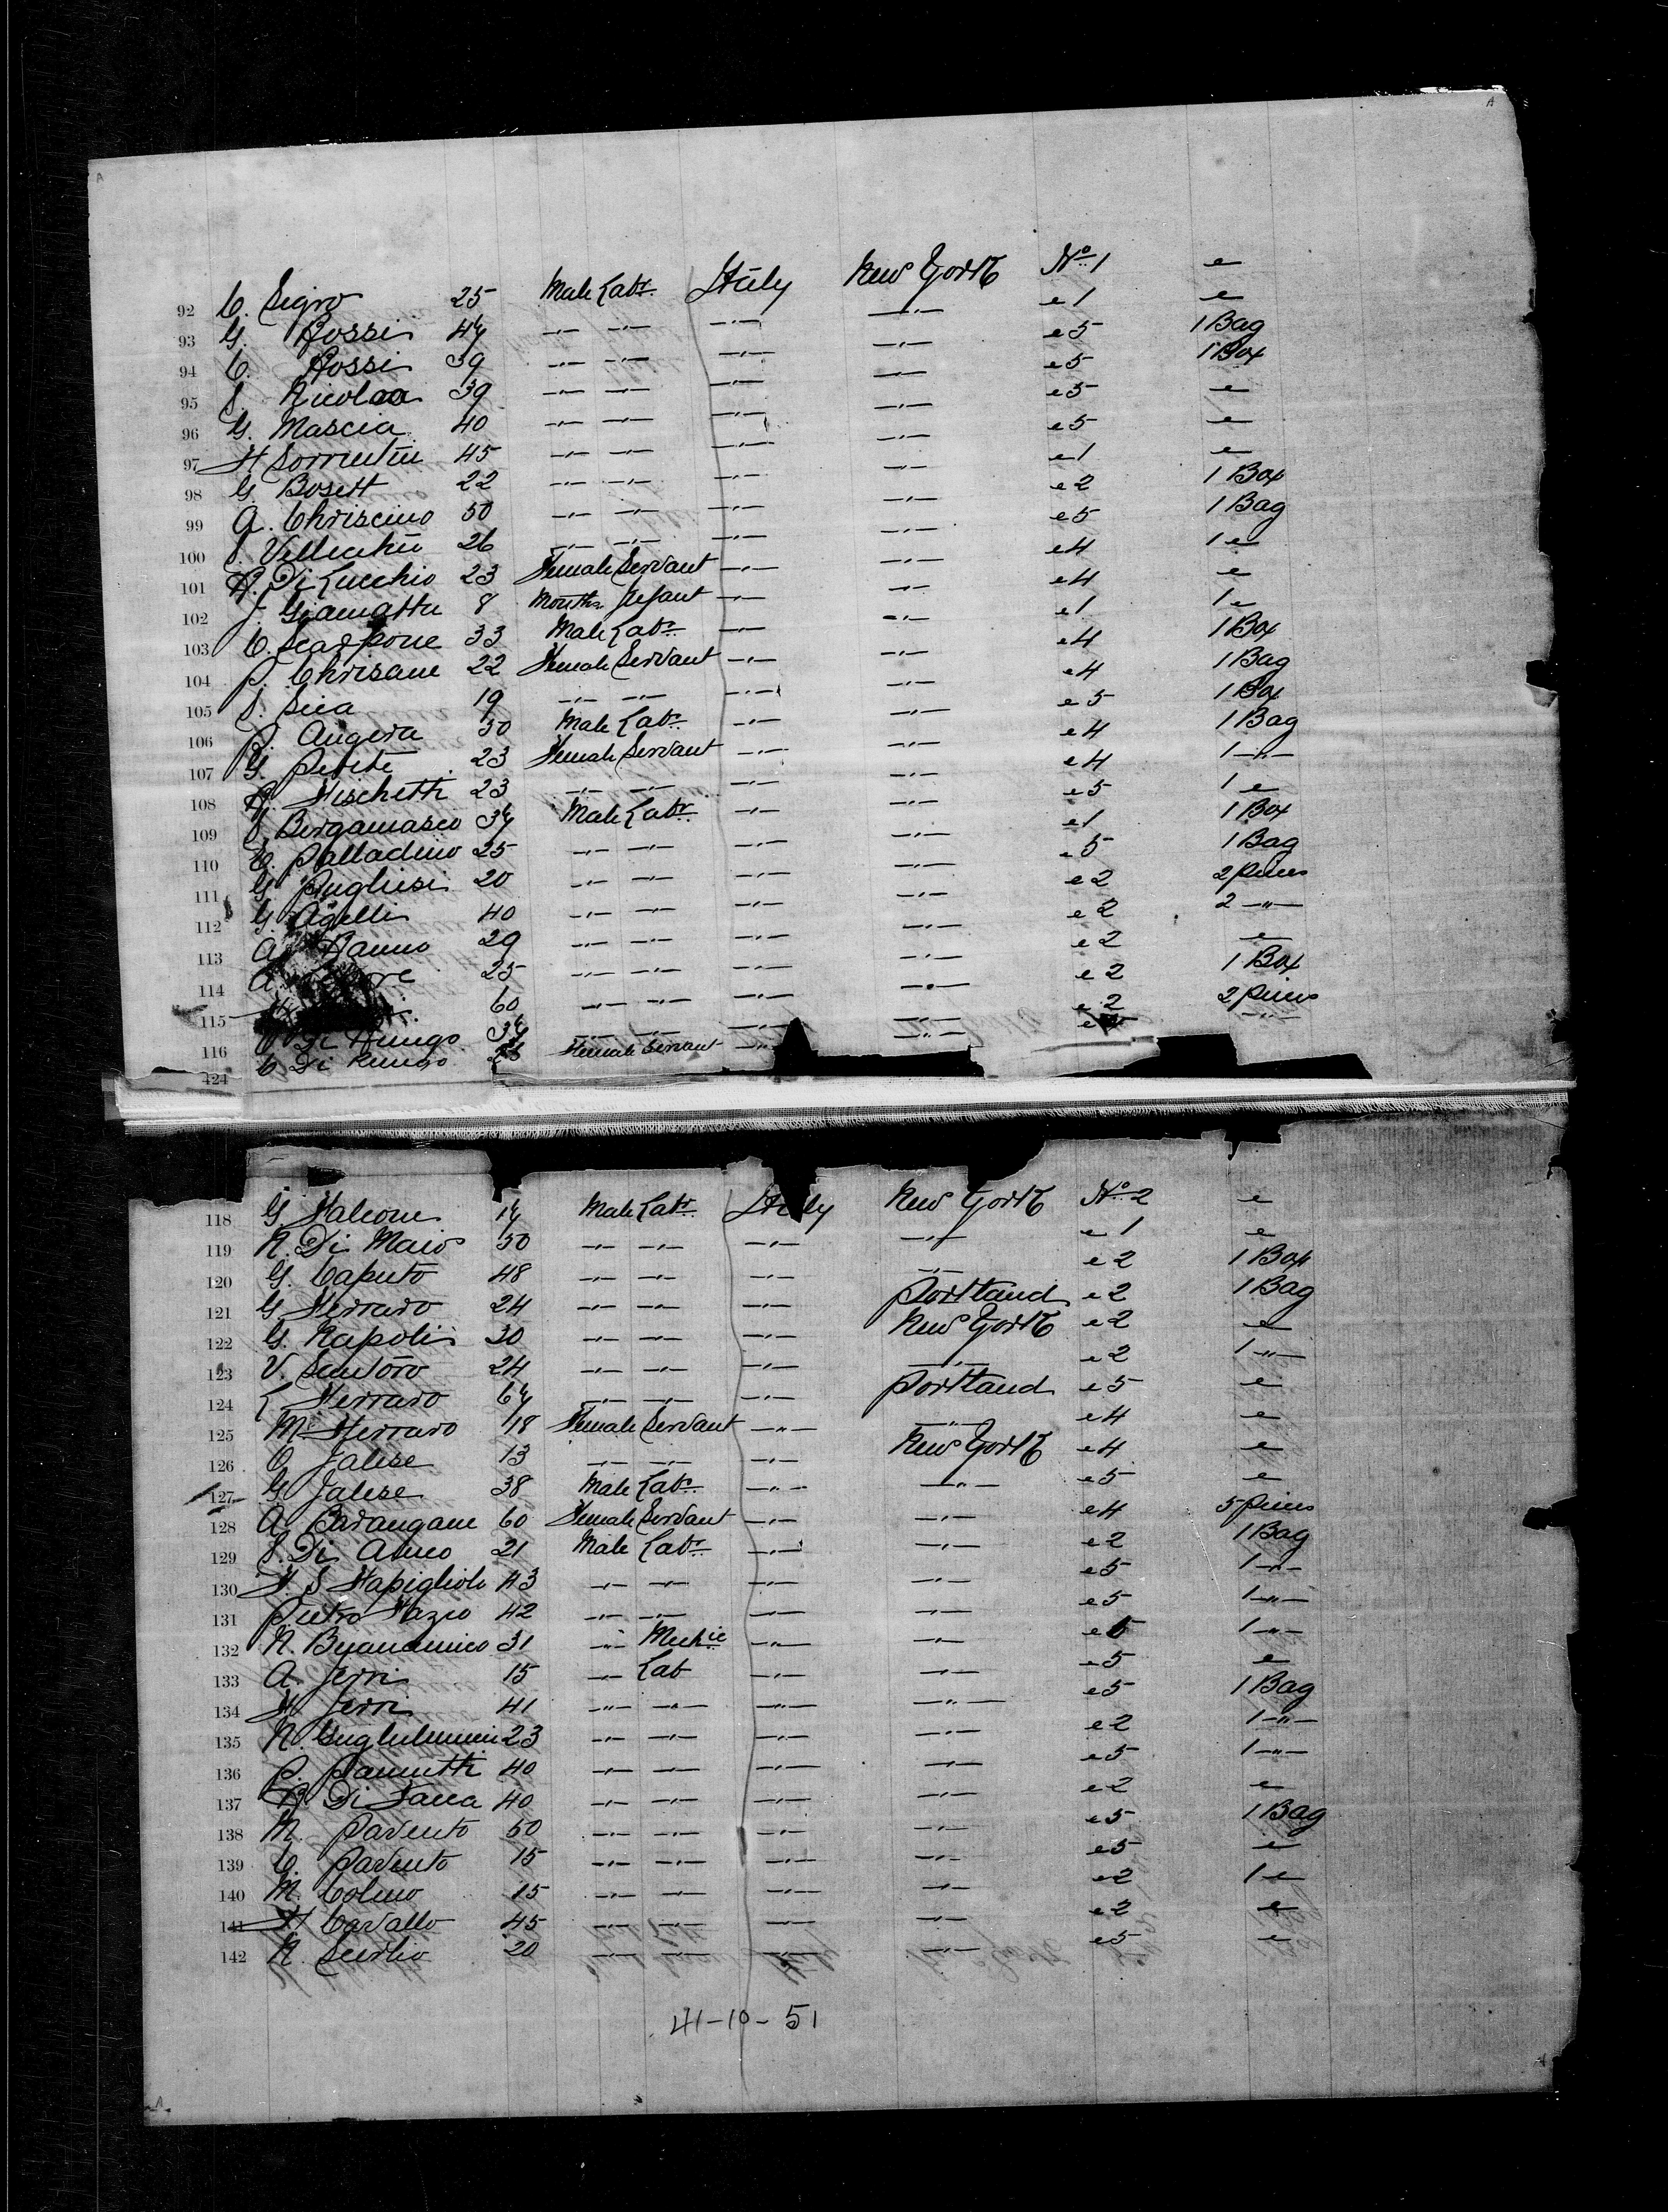 92 C. Sigro 25 Male Labr. Italy New York No. 1 "
93 G. Rossi 47 " " " " " 1 "
94 C. Rossi 39 " " " " " 5 1 Bag
95 S. Nicolaa 39 " " " " " 5 1 Box
96 G. Mascia 40 " " " " " 5 "
97 F Sorrentin 45 " " " " " 5 "
98 G. Bosett 22 " " " " " 1 "
99 A. Chriscino 50 " " " " " 2 1 Box
100 26 " " " " " 5 1 Bag
101 R. Di Lucchio 23 Female Servant " " " 4 1 "
102 J. Giamatta 8 Months Infant " " " 4 "
103 C. Scarpone 33 Male Labr. " " " 1 1 "
104 P. Chrisane 22 Female Servant " " " 4 1 Box
105 S. Sica 19 " " " " " 4 1 Bag
106 R. Angera 30 Male Labr. " " " 5 1 Box
107 G. Petite 23 Female Servant " " " 4 1 Bag
108 R. Fischetti 23 " " " " " 4 1 "
109 S. Bergamasco 37 Male Labr. " " " 5 1 "
110 C. Palladino 25 " " " " " 1 1 Box
111 G. Pugliesi 20 " " " " " 5 1 Bag
112 G. Agelli 40 " " " " " 2 2 pieces
113 A. Ranno 29 " " " " " 2 2 "
114 A 25 " " " " " 2 "
115 60 " " " " " 2 1 Box
116 Di Rungo 37 " " " " " 2 2 pieces
C Di Rungo Female Servant " " "
118 G Falcone 17 Male Labr. Italy New York No. 2 "
119 N. Di Maio 50 " " " " " 1 "
120 G. Caputo 48 " " " " " 2 1 Box
121 G Ferraro 24 " " " Portland " 2 1 Bag
122 G. Napoli 30 " " " New York " 2 "
123 V. Santoro 24 " " " " " 2 1 "
124 L Ferraro 67 " " " Portland " 5 "
125 M Ferraro 18 Female Servant " " " 4 "
126 O Jalese 13 " " " New York " 4 "
127 G Jalese 38 Male Labr. " " " 5 "
128 A Barangane 60 Female Servant " " " 4 5 pieces
129 S. Di Amico 21 Male Labr. " " " 2 1 Bag
130 F. S Fapiglioli 43 " " " " " 5 1 "
131 Pietro Fazio 42 " " " " " 5 1 "
132 N. Buanamico 31 " Mechic " " " 5 1 "
133 A. Jerri 15 " Lab " " " 5 "
134 F Jerri 41 " " " " " 5 1 Bag
135 N. Guglielmini 23 " " " " " 2 1 "
136 P. Pannetti 40 " " " " " 5 1 "
137 R. Di Facca 40 " " " " " 2 "
138 M. Parento 50 " " " " " 5 1 Bag
139 C. Parento 15 " " " " " 5 "
140 M. Colino 15 " " " " " 2 1 "
141 F Cavallo 45 " " " " " 2 "
142 N. Scurlio 20 " " " " " 5 "
41-10-51